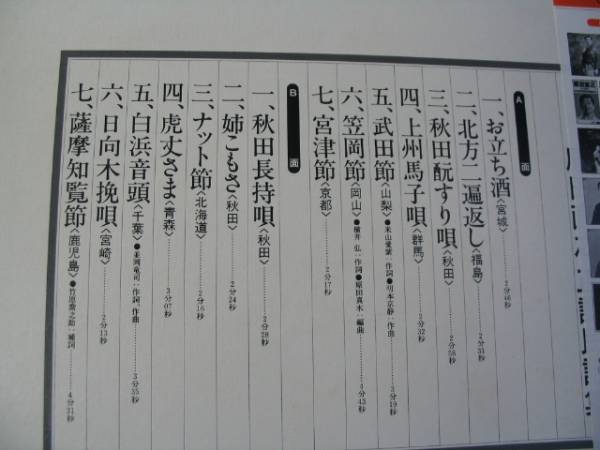 A面
一、お立ち酒〈宮城〉……2分46秒
二、北方二遍返し〈福島〉……2分31秒
三、秋田酛すり唄〈秋田〉……2分58秒
四、上州馬子唄〈群馬〉……2分32秒
五、武田節〈山梨〉●米山愛紫・作詞●明本京静・作曲……3分19秒
六、笠岡節〈岡山〉●横井弘・作詞●原田真木・編曲……4分43秒
七、宮津節〈京都〉……2分17秒
B面
一、秋田長持唄〈秋田〉……2分28秒
二、姉こもさ〈秋田〉……2分24秒
三、ナット節〈北海道〉……2分16秒
四、虎丈さま〈青森〉……3分07秒
五、白浜音頭〈千葉〉……3分35秒
六、日向木挽唄〈宮崎〉……2分13秒
七、薩摩知覧節〈鹿児島〉……4分31秒